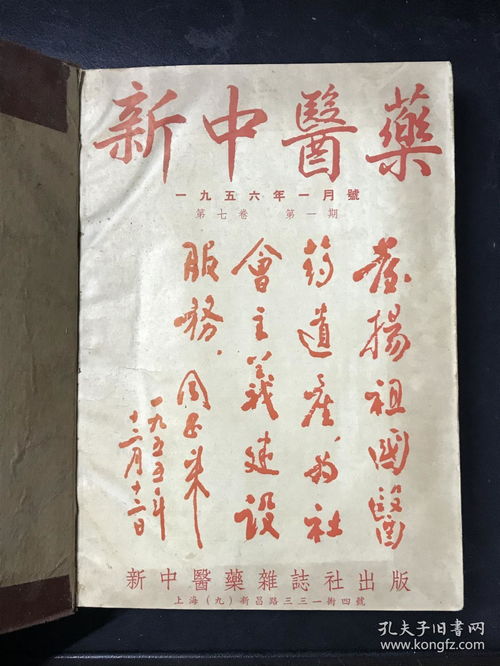 新中醫藥
一九五六年一月號
第七卷 第一期
發揚祖國醫
药遺產，为社
會主義建設
服務．
周恩来
一九五五年
十二月十二日
新中醫藥雜誌社出版
上海（九）新昌路三三一衖四號
孔夫子旧书网
www.kongfz.com